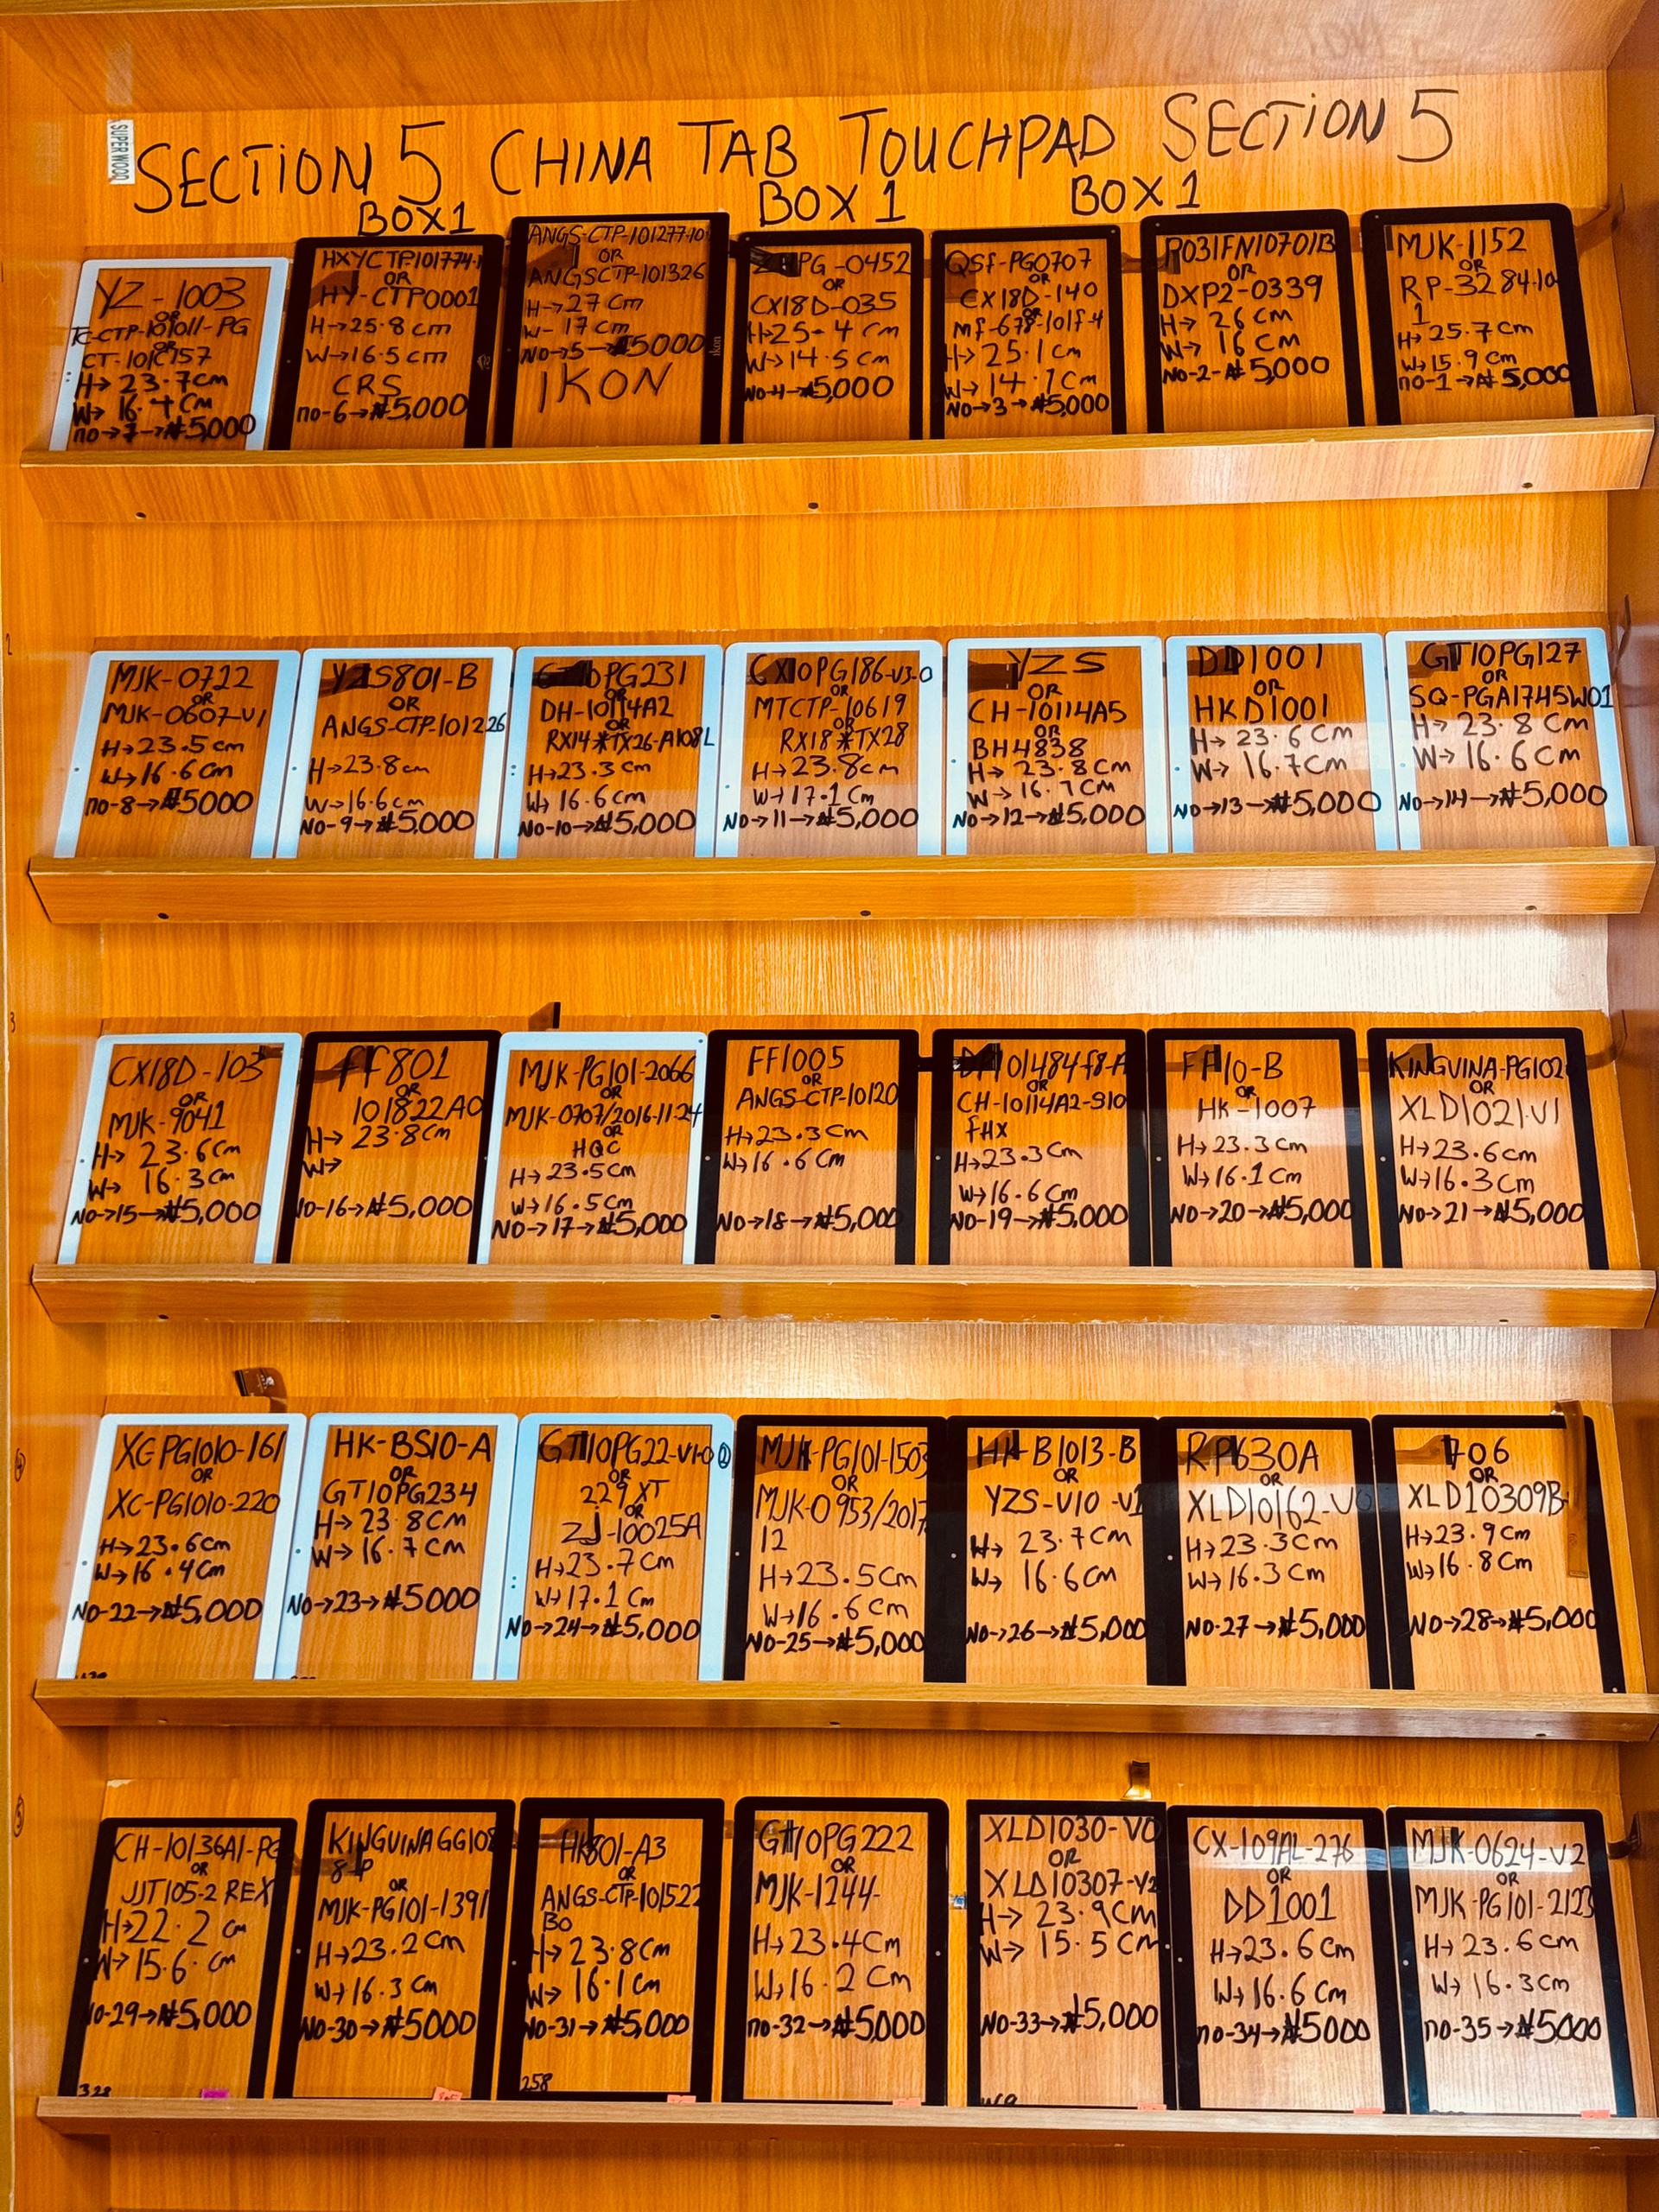 SUPER WOOD
SECTION 5 CHINA TAB TOUCHPAD SECTION 5
BOX1 BOX 1 BOX 1
YZ-1003
OR
TC-CTP-101011-PG
OR
CT-101C157
H→23.7cm
W→16.4cm
no→7→₦5,000
HXYCTP101774.1
OR
HY-CTP0001
H→25.8cm
W→16.5cm
CRS
no-6→₦5,000
ANGS-CTP-101277-10
OR
ANGSCTP-101326
H→27cm
W-17cm
No→5→₦5000
IKON
PG-0452
OR
CX18D-035
H→25.4cm
W→14.5cm
No-4→₦5,000
QSf-PG0707
OR
CX18D-140
OR
Mf-678-101f-4
H→25.1cm
W→14.7cm
No→3→₦5,000
R031FN10701B
OR
DXP2-0339
H→26cm
W→16cm
No-2-₦5,000
MJK-1152
OR
RP-3284.10
1
H→25.7cm
W→15.9cm
no-1→₦5,000
2
MJK-0722
OR
MJK-0607-V1
H→23.5cm
W→16.6cm
no-8→₦5000
YZS801-B
OR
ANGS-CTP-101226
H→23.8cm
W→16.6cm
No-9→₦5,000
GT10PG231
OR
DH-10114A2
OR
RX14*TX26-A108L
H→23.3cm
W→16.6cm
No-10→₦5,000
CX10PG186-V3-0
OR
MTCTP-10619
OR
RX18*TX28
H→23.8cm
W→17.1cm
No→11→₦5,000
YZS
OR
CH-10114A5
OR
BH4838
H→23.8cm
W→16.7cm
No→12→₦5,000
DD1001
OR
HKD1001
H→23.6cm
W→16.7cm
No→13→₦5,000
GT10PG127
OR
SQ-PGA1745W01
H→23.8cm
W→16.6cm
No→14→₦5,000
3
CX18D-103
OR
MJK-9041
H→23.6cm
W→16.3cm
No→15→₦5,000
FF801
OR
101822A0
H→23.8cm
W→
No-16→₦5,000
MJK-PG101-2066
OR
MJK-0707/2016-11-24
OR
HQC
H→23.5cm
W→16.5cm
No→17→₦5,000
FF1005
OR
ANGS-CTP-10120
H→23.3cm
W→16.6cm
No→18→₦5,000
101484f8-A
OR
CH-10114A2-S10
FHX
H→23.3cm
W→16.6cm
No-19→₦5,000
FF10-B
OR
HK-1007
H→23.3cm
W→16.1cm
No→20→₦5,000
KINGVINA-PG102
OR
XLD1021-V1
H→23.6cm
W→16.3cm
No→21→₦5,000
4
XCPG1010-161
OR
XC-PG1010-220
H→23.6cm
W→16.4cm
No-22→₦5,000
HK-BS10-A
OR
GT10PG234
H→23.8cm
W→16.7cm
No→23→₦5000
GT10PG22-V1-0
OR
229XT
OR
ZJ-10025A
H→23.7cm
W→17.1cm
No→24→₦5,000
MJK-PG101-1503
OR
MJK-0953/2017
12
H→23.5cm
W→16.6cm
No-25→₦5,000
HK-B1013-B
OR
YZS-V10-V1
H→23.7cm
W→16.6cm
No→26→₦5,000
RP630A
OR
XLD10162-V0
H→23.3cm
W→16.3cm
No-27→₦5,000
706
OR
XLD10309B
H→23.9cm
W→16.8cm
No→28→₦5,000
5
CH-10136A1-PG
OR
JJT105-2 REX
H→22.2cm
W→15.6.cm
No-29→₦5,000
328
KINGVINAGG108
8-P
OR
MJK-PG101-1391
H→23.2cm
W→16.3cm
No-30→₦5000
HK801-A3
OR
ANGS-CTP-101522
B0
H→23.8cm
W→16.1cm
No-31→₦5,000
258
GT10PG222
OR
MJK-1244-
H→23.4cm
W→16.2cm
no-32→₦5,000
XLD1030-V0
OR
XLD10307-V2
H→23.9cm
W→15.5cm
No-33→₦5,000
CX-109AL-276
OR
DD1001
H→23.6cm
W→16.6cm
no-34→₦5000
MJK-0624-V2
OR
MJK-PG101-2123
H→23.6cm
W→16.3cm
no-35→₦5000